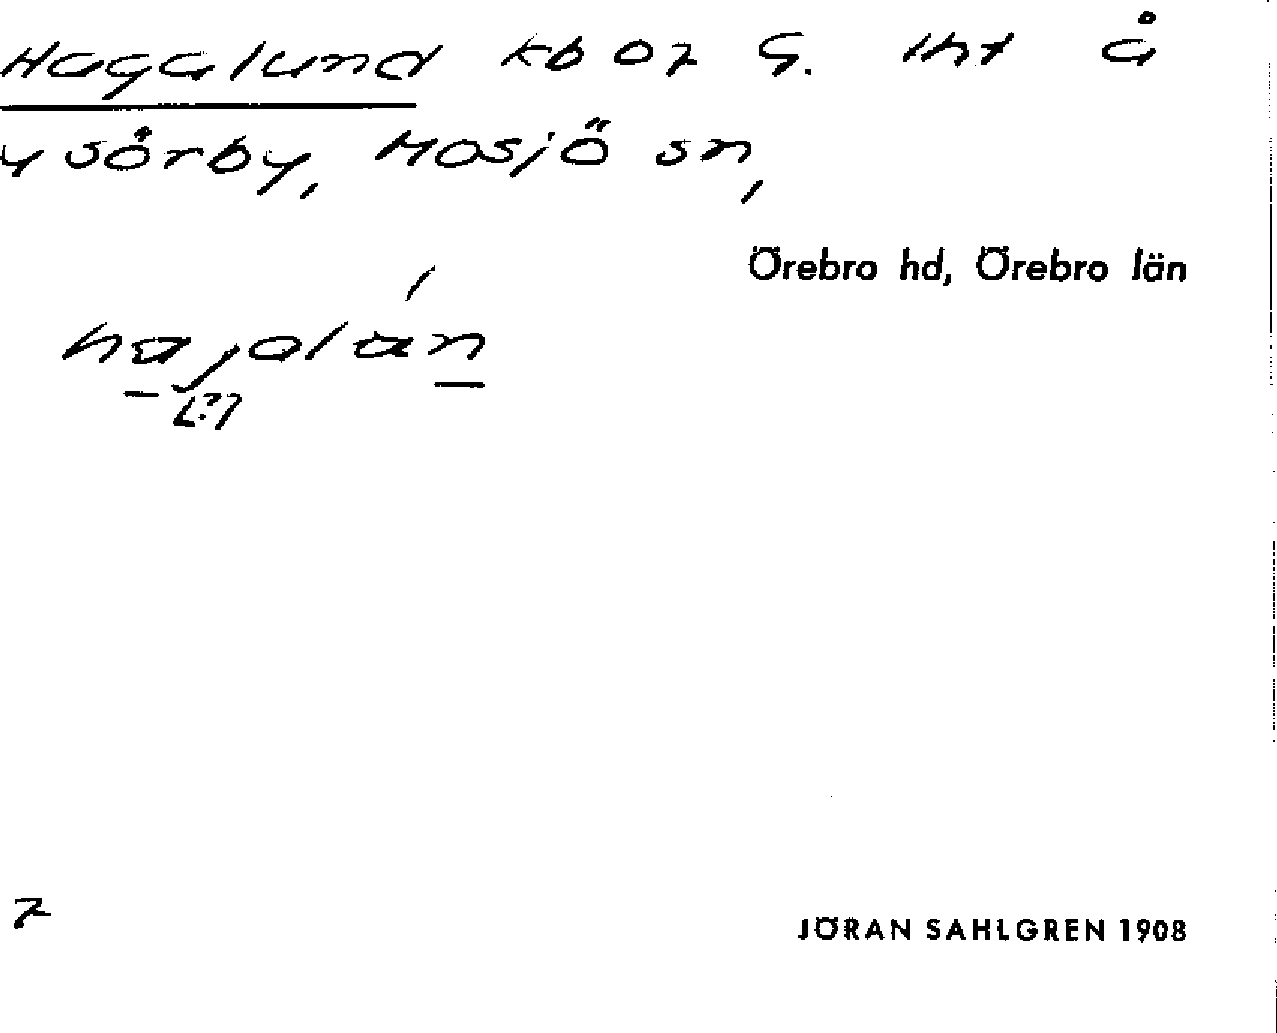 Hagalund kb oz G. lht å
y sörby, Mosjö sn,
Örebro hd, Örebro län
hajalán
[?]
JÖRAN SAHLGREN 1908